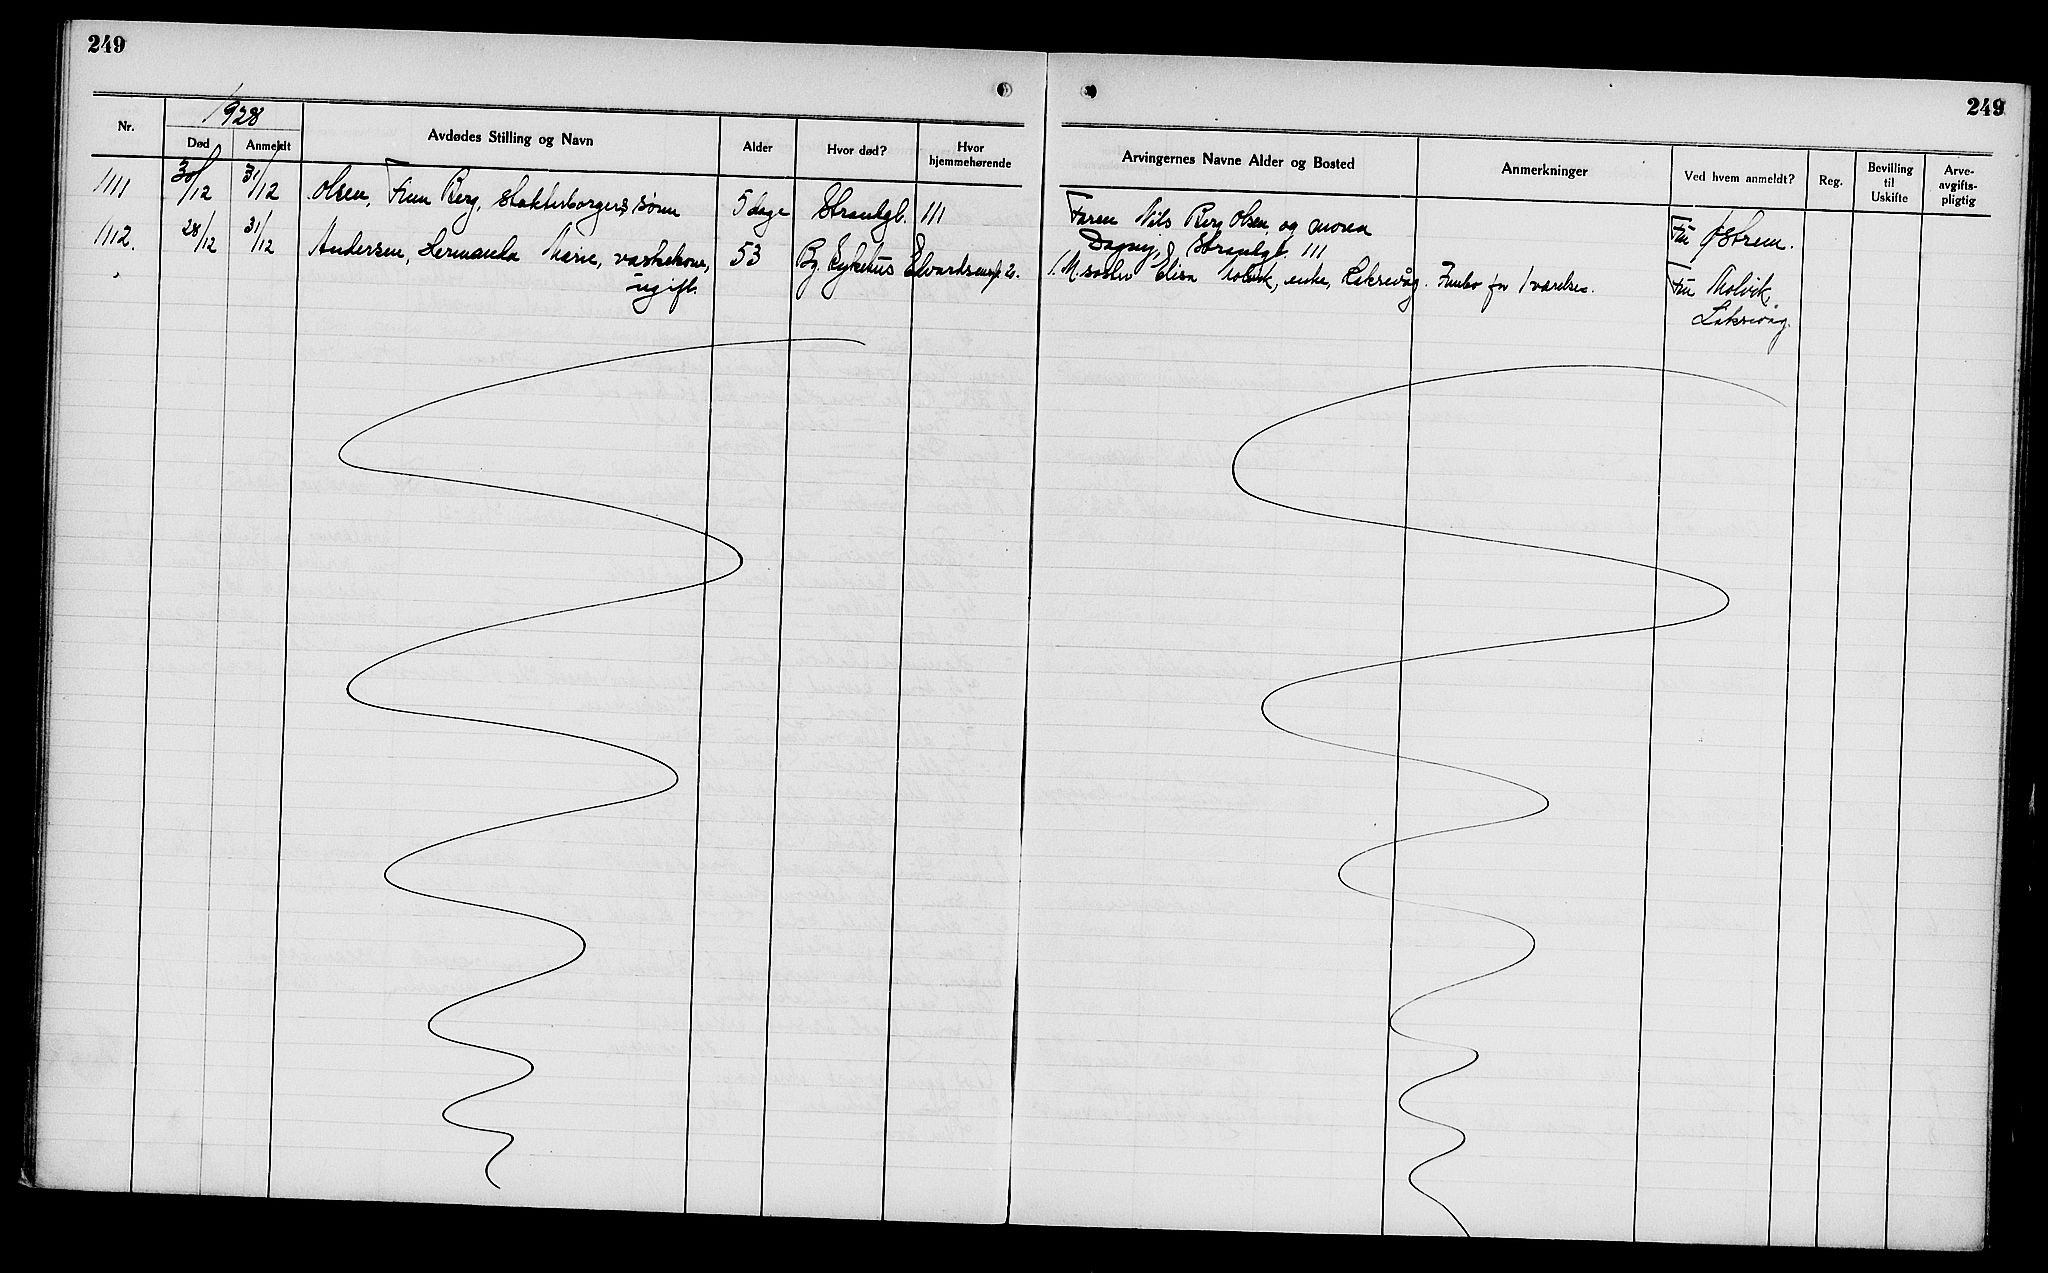 249
249
1928
Nr.
Død
Anmeldt
Avdødes Stilling og Navn
Alder
Hvor død?
Hvor
hjemmehørende
Arvingernes Navne Alder og Bosted
Anmerkninger
Ved hvem anmeldt?
Reg.
Bevilling
til
Uskifte
Arve-
avgifts-
pligtig
1111 30/12 31/12 Olsen, Finn Berg, søn 5 dage Strandgt. 111
Faren Nils Berg Olsen, og moren
Dagny, Strandgt. 111
Fru Østrem.
1112. 28/12 31/12 Andersen, Hermanda Marie, vaskekone, 53 By. Sykehus
ugift.
1. M. søster Elisa enke, Laksevåg. Innbo for 1 værelse.
Fru Molvik,
Laksevåg.